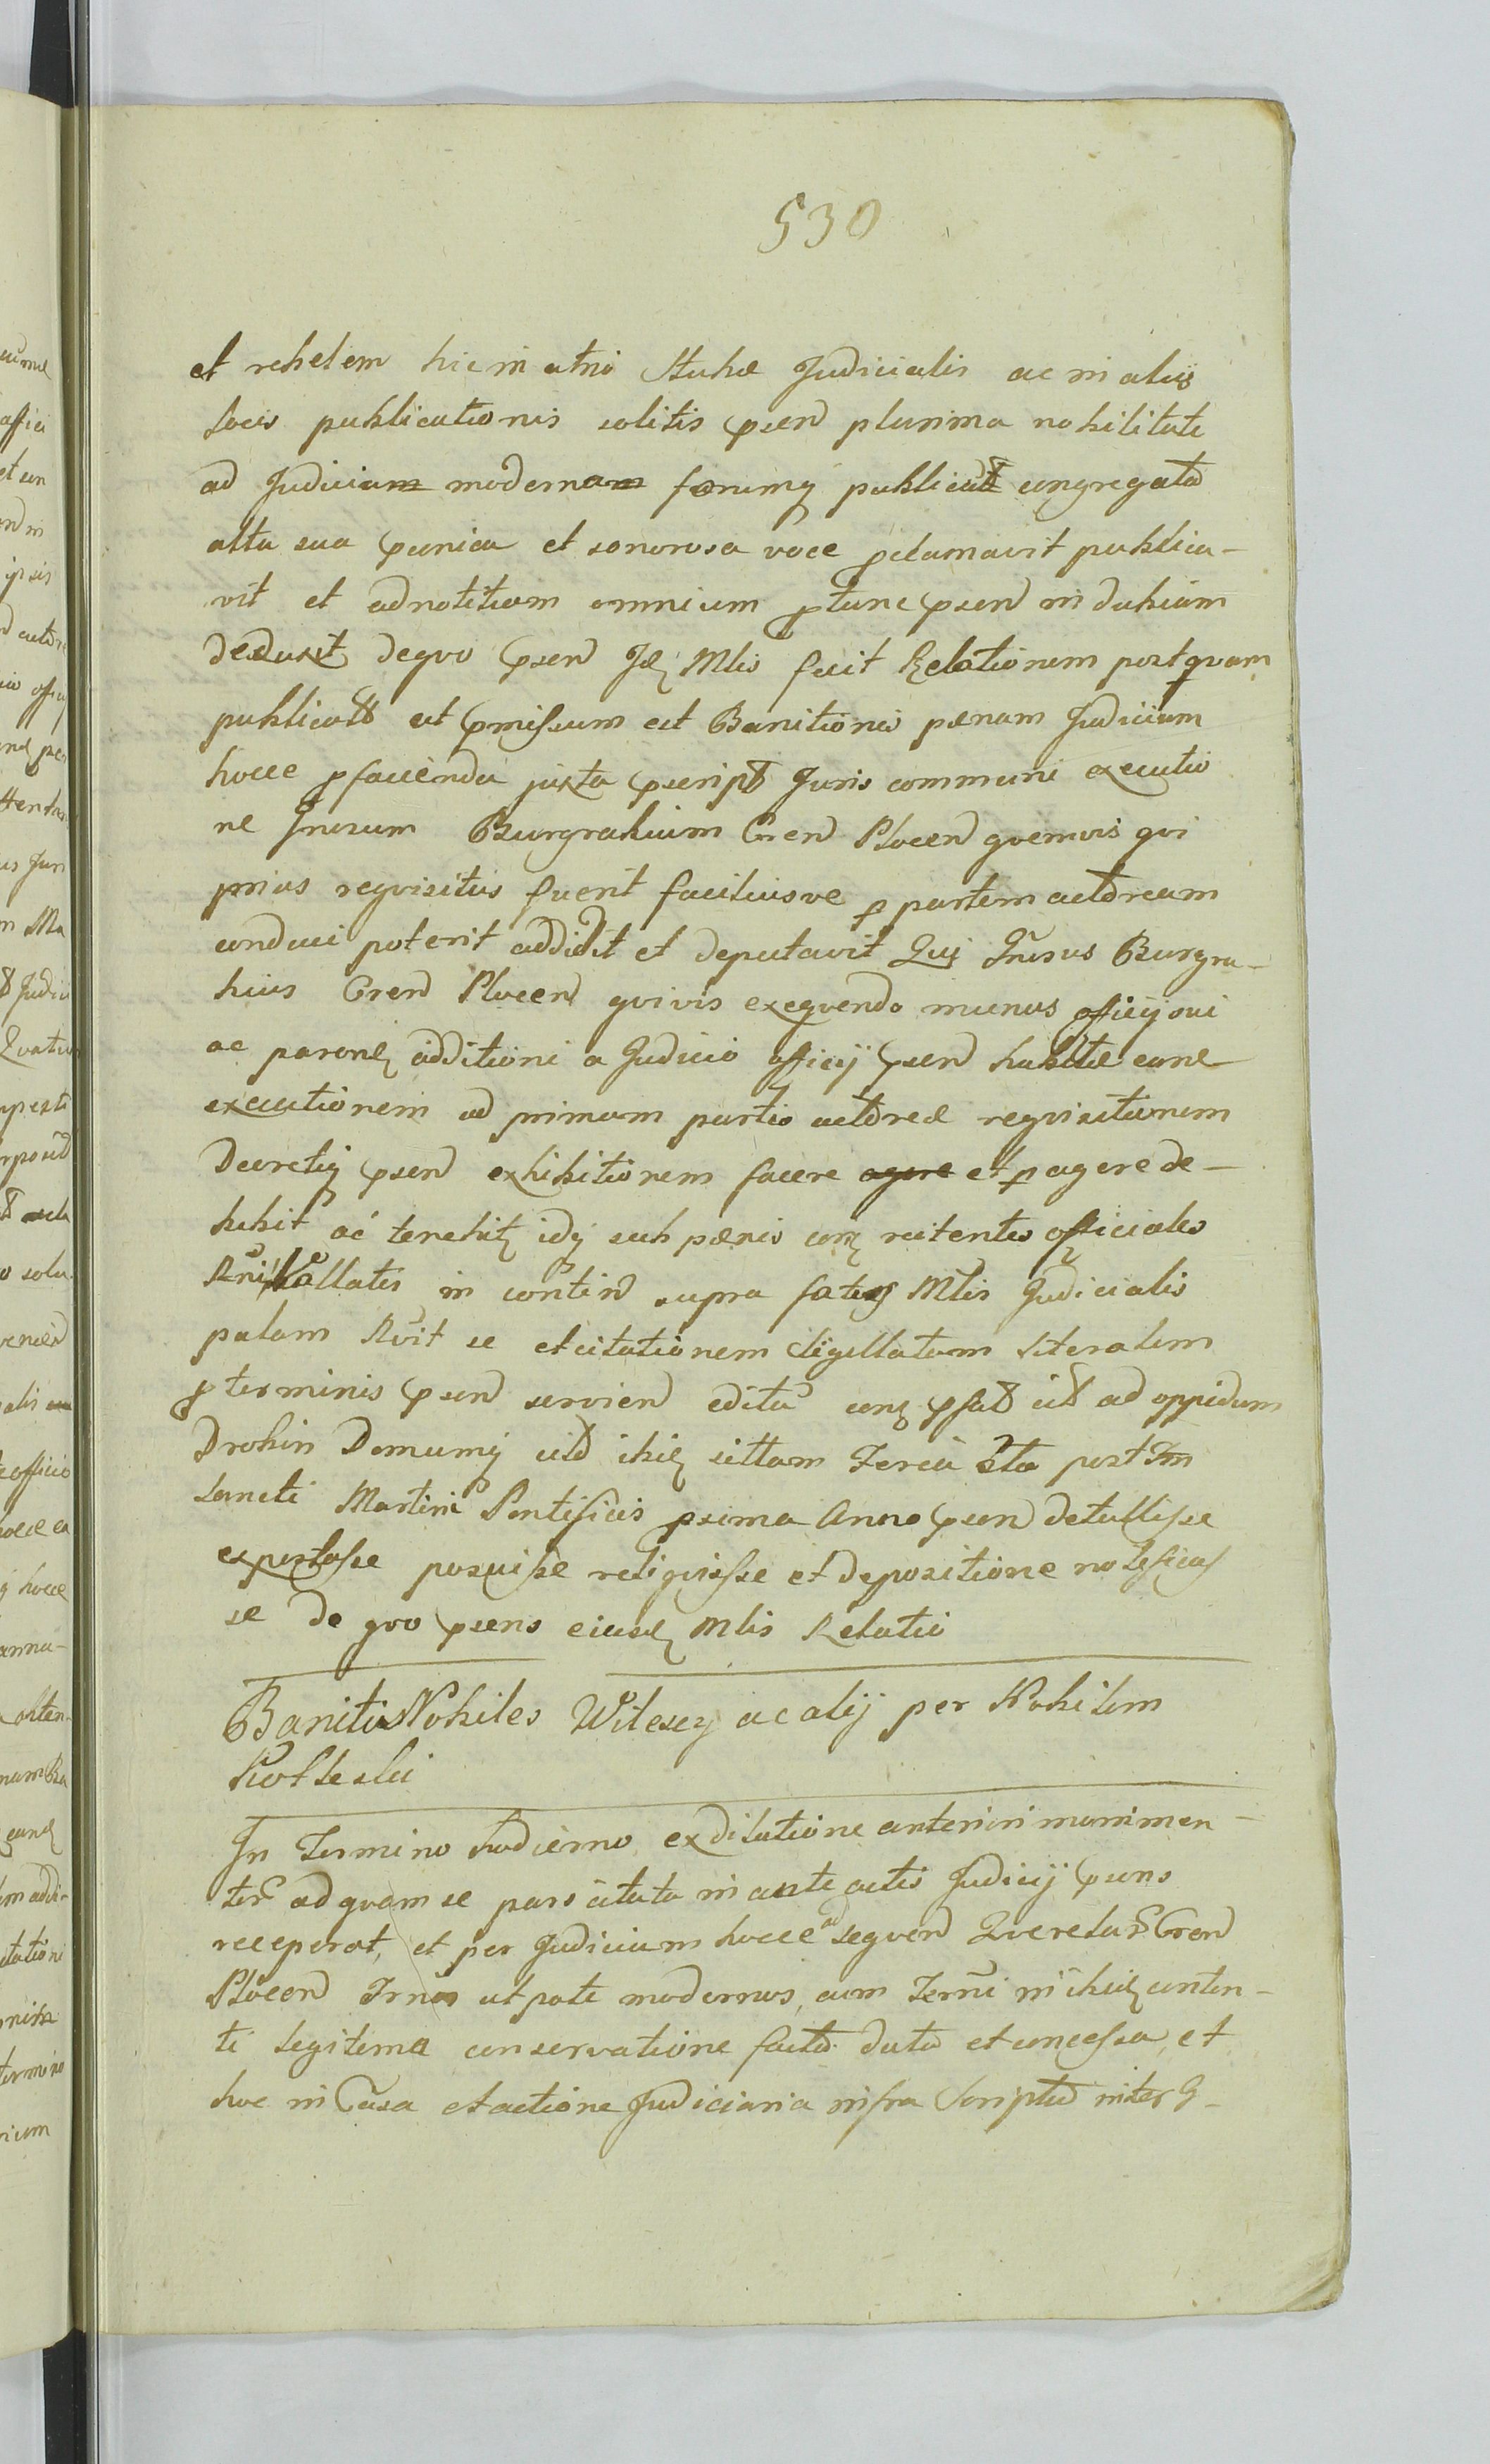 530
et rebelem hic in atrio Stubæ Judicialis ac in aliis
locis publicationis solitis psen plurima nobilitate
ad Judicium moderna forumq publicat congregata
alta sua punica et sonorosa voce pclamavit publica-
vit et ad notitiam omnium ptunc psen in dubiam
deduxit de quo psen Jd Mlis fecit Relationem post quam
publicat ut pmissum est Banitionis pœnam Judicium
hocce p facienda juxta pscript Juris communi executio
ne Gnrosum Burgrabium Cren Plocen quemvis qui
prius requisitus fuerit faciliusve p partem actoream
conduci poterit addidit et deputavit Qui Gnrosus Burgra-
bius Cren Plocen quivis exequendo munus officij sui
ac parend additioni a Judicio officij psen habitæ eane
executionem ad primam partis actoreæ requisitionem
Decretiq psen exhibitionem facere agere et pagere de-
bebit ac tenebit idq sub pœnis con reitentes officiales
in contin supra fatus Mlis Judicialis
palam Rvit se et citationem sigillatam literalem
p terminis psen servien edita con psat cit ad oppidum
Drobin Domumq cita ibid sittam Feria 6ta post Fm
Sancti Martini Pontificis pxima Anno psen detullisse
exportasse posuisse reliquisse et depositione notificas
se de quo psens eiusd Mlis Relatio
Baniti Nobiles Wilescy ac alij per Nobilem

In Termino hodierno ex dilatione anteriori munimen-
tor ad quam se pars citata in ante actis Judicij psens
receperat, et per Judicium hocce ad sequen Querelar Cren
Plocen Trnos ut pote modernos, cum Termi in ibid conten-
ti legitima conservatione facta data et concessa, et
hoc in Causa et actione Judiciaria infra scripta inter G-